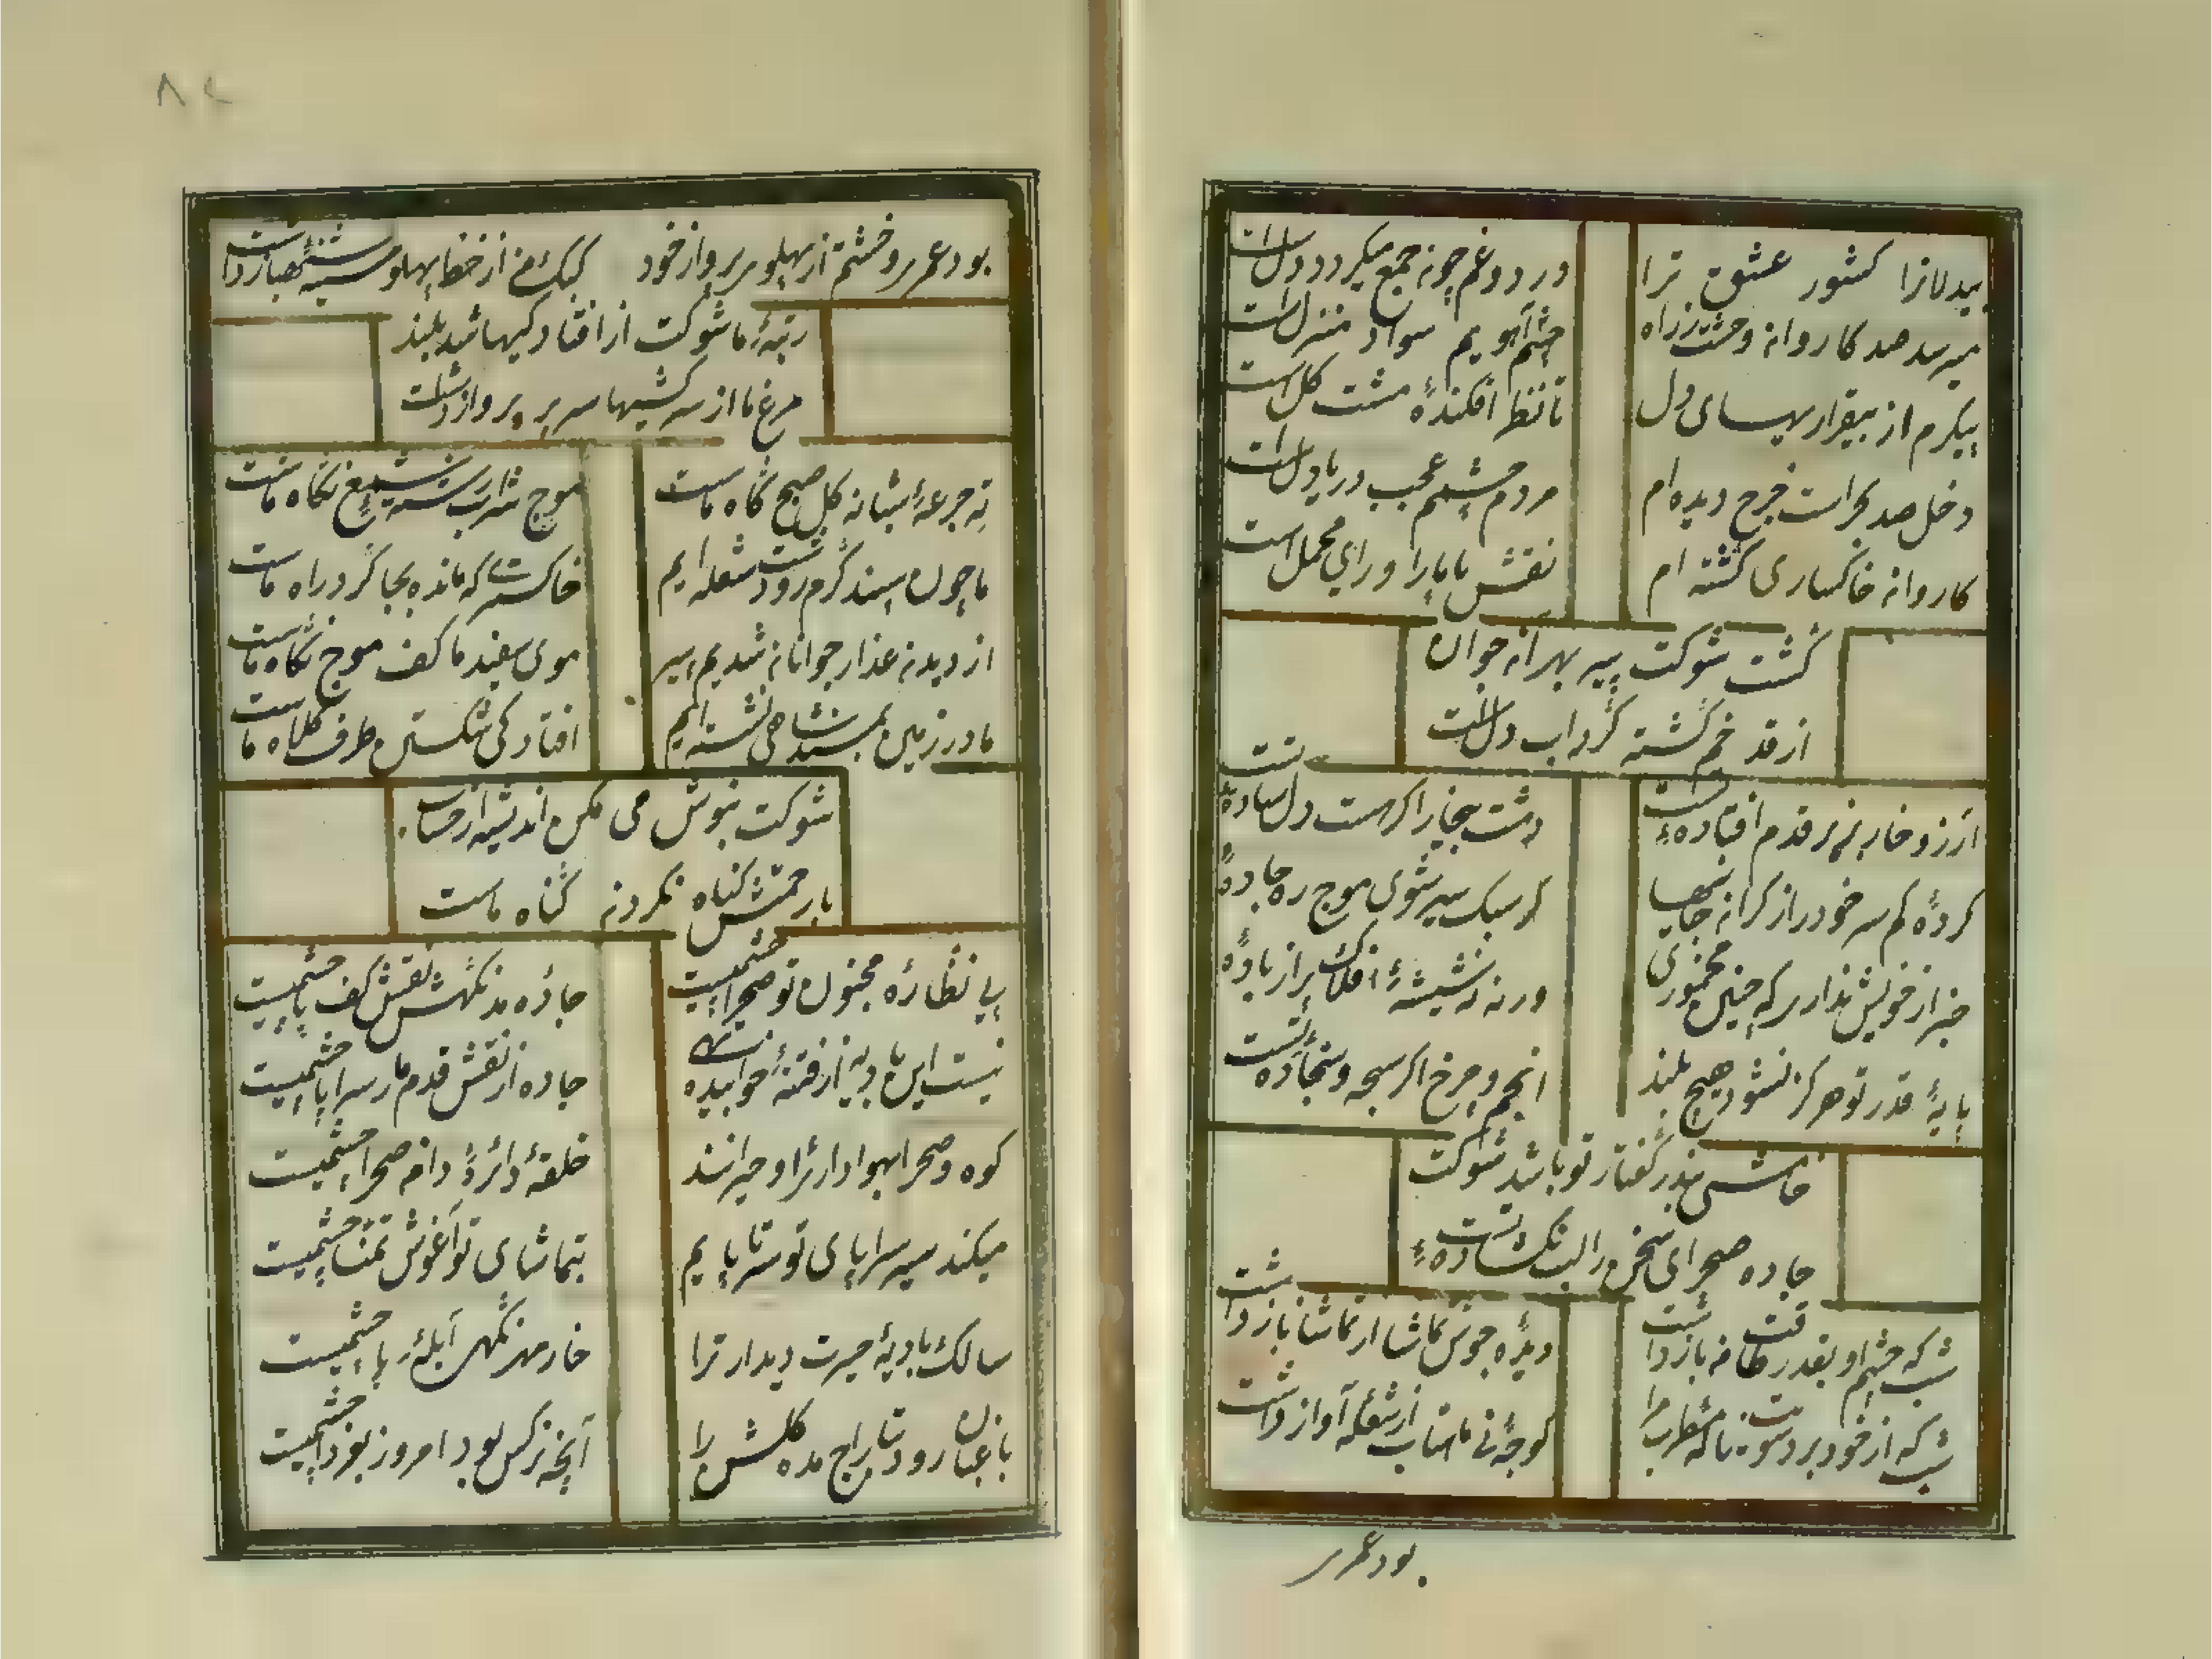 بیدلانرا کشور عشق ترا
درد و غم چون جمع میکردد دل است
میرسد صد کاروان وحشت ز راه
چشم آهویم سواد منزل است
پیکرم از بیقراریهای دل
تا نظر افکندهٔ مشت کل است
دخل صد بحر است خرج دیده ام
مردم چشمم عجب دریا دل است
کاروان خاکساری کشته ام
نقش پا پا را ورای محمل است
کشت شوکت پیر بهر آن جوان
از قد خم کشته کرداب دل است
آرزو خار بزیر قدم افتادهٔ تست
دشت بیخار اکر هست دل سادهٔ تست
کردهٔ کم سر خود را ز کران جانیها
کر سبک سیر شوی موج ره جادهٔ تست
خبر از خویش نداری که چنین مخموری
ورنه نه شیشهٔ افلاک پر از بادهٔ تست
پایهٔ قدر تو هرکز نشود هیچ بلند
انجم و چرخ اکر سبحه و سجادهٔ تست
خامشی بندر کفتار تو باشد شوکت
جاده صحرای سخن را لب نکشادهٔ تست
شب که چشم او بقدر طاقت باز داشت
دیده جوش تماشا از تماشا باز داشت
شب که از خود برد سویت ناله مطرب مرا
کوچهٔ نی ماهتاب از شعلهٔ آواز داشت
بود عمری
۸۲
بود عمری وحشتم از پهلو پرواز خود
کبک من از خط پهلو سینه شهباز داشت
رتبهٔ ما شوکت از افتادکیها شد بلند
مرغ ما از سرکشیها سر بر پرواز داشت
ته جرعهٔ شبانه کل صبح کاه ماست
موج شراب رشتهٔ شمع نکاه ماست
ما چون سپند کرم رو دشت شعله ایم
خاکستری که مانده بجا کرد راه ماست
از دیدن عذار جوانان شدیم پیر
موی سفید ما کف موج نکاه ماست
ما در زمین بمسند شاهی نشسته ایم
افتادکی شکستن طرف کلاه ماست
شوکت بنوش می مکن اندیشه از حساب
با رحمتش کناه نکردن کناه ماست
پی نظارهٔ مجنون تو صحرا چشمیست
جاده مد نکهش نقش کف پا چشمیست
نیست این بادیه از فتنهٔ خوابیده تهی
جاده از نقش قدم مار سراپا چشمیست
کوه و صحرا بهوا دار ترا و حیرانند
حلقهٔ دائرهٔ دام صحرا چشمیست
میکند سیر سراپای تو سر تا پایم
بتماشای تو آغوش تمنا چشمیست
سالک بادیهٔ حیرت دیدار ترا
خار مد نکهی آبلهٔ پا چشمیست
باغبان رود بتاراج مده کلشن را
آنچه نرکس بود امروز بفردا چشمیست